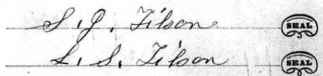 S. J. Filson SEAL
L. S. Filson SEAL